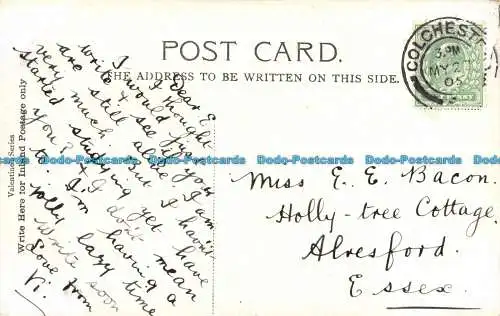 POST CARD.
THE ADDRESS TO BE WRITTEN ON THIS SIDE.
Valentines Series
Write Here for Inland Postage only
Dear E
I thought
I would just
write & see if you
are still alive I am
very much but I haven't
started studying yet have
you? & I don't mean
to. I'm having a
jolly lazy time
Write soon
Love from
Vi.
COLCHESTER
3 PM
MY
05
Miss E. E. Bacon.
Holly-tree Cottage.
Alresford.
Essex.
Dodo-Postcards Dodo-Postcards Dodo-Postcards Dodo-Postcards Dodo-Postcards